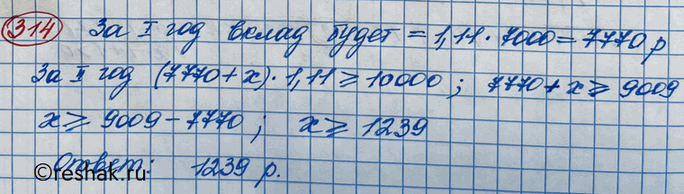 314 За I год вклад будет = 1,11 · 7000 = 7770 р
За II год (7770 + x) · 1,11 ⩾ 10000 ; 7770 + x ⩾ 9009
x ⩾ 9009 - 7770 ; x ⩾ 1239
Ответ: 1239 р.
©reshak.ru